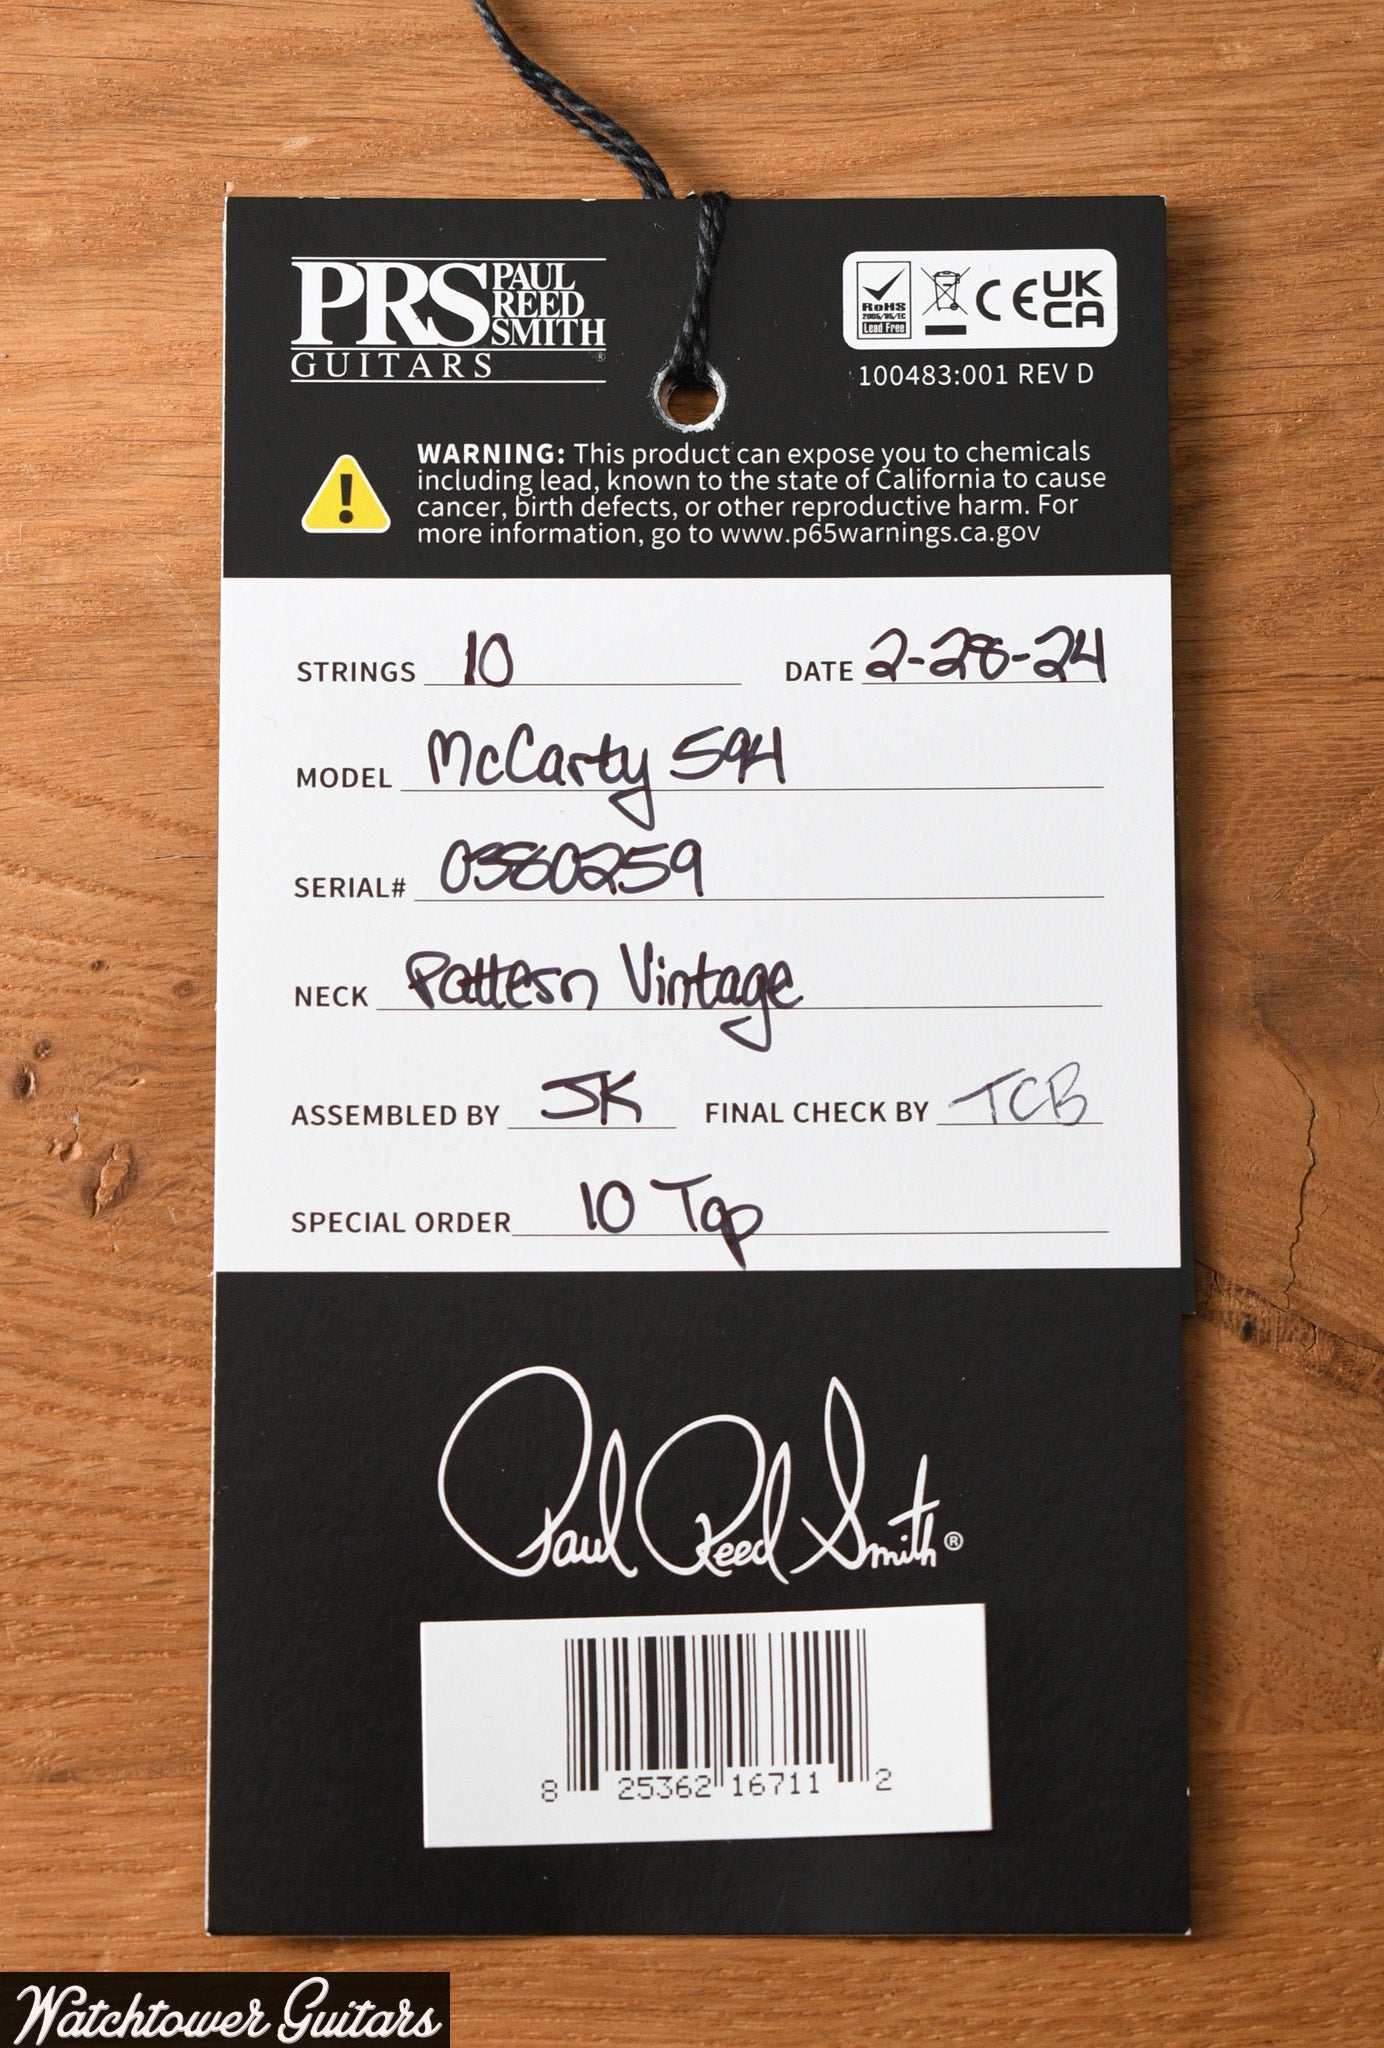 PRS PAUL REED SMITH
GUITARS ®
RoHS
2005/95/EC
Lead Free
CE UK CA
100483:001 REV D
WARNING: This product can expose you to chemicals
including lead, known to the state of California to cause
cancer, birth defects, or other reproductive harm. For
more information, go to www.p65warnings.ca.gov
STRINGS 10 DATE 2-28-24
MODEL McCarty 594
SERIAL# 0380259
NECK Pattern Vintage
ASSEMBLED BY JK FINAL CHECK BY TCB
SPECIAL ORDER 10 Top
Paul Reed Smith®
8 25362 16711 2
Watchtower Guitars